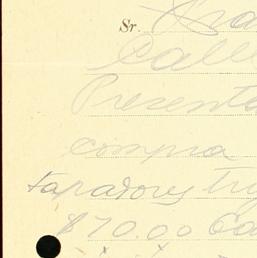 Sr.
Calle
Presenta
compra
tapadores
$70.00 Ca